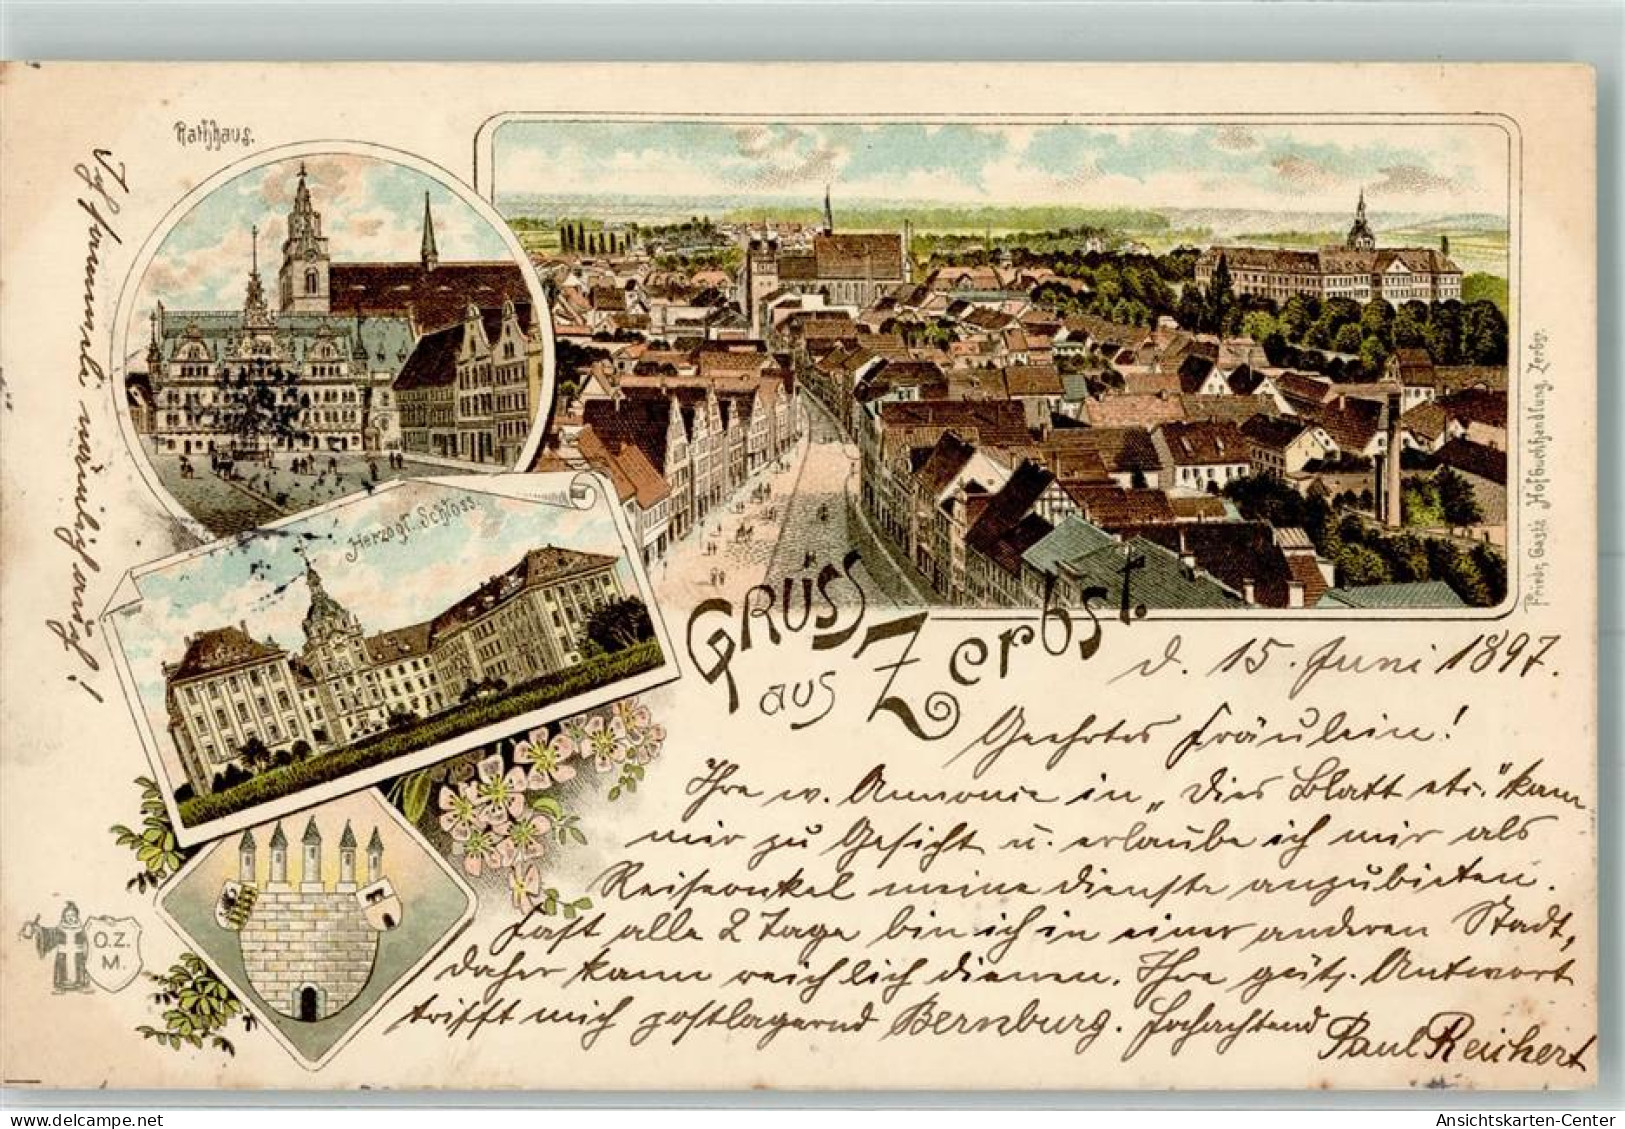 Rathhaus.
Herzogl. Schloss.
Gruss
aus Zerbst.
Friedr. Gast's Hofbuchhandlung, Zerbst.
O.Z.
M.
d. 15. Juni 1897.
Geehrtes Fräulein!
Ihre w. Annonce in „Dies Blatt etc." kam
mir zu Gesicht u. erlaube ich mir als
Reiseonkel meine Dienste anzubieten.
Fast alle 2 Tage bin ich in einer anderen Stadt,
daher kann reichlich dienen. Ihre gütg. Antwort
trifft mich postlagernd Bernburg. Hochachtend
Paul Reichert
Ich sammle einig auf!
Ansichtskarten-Center